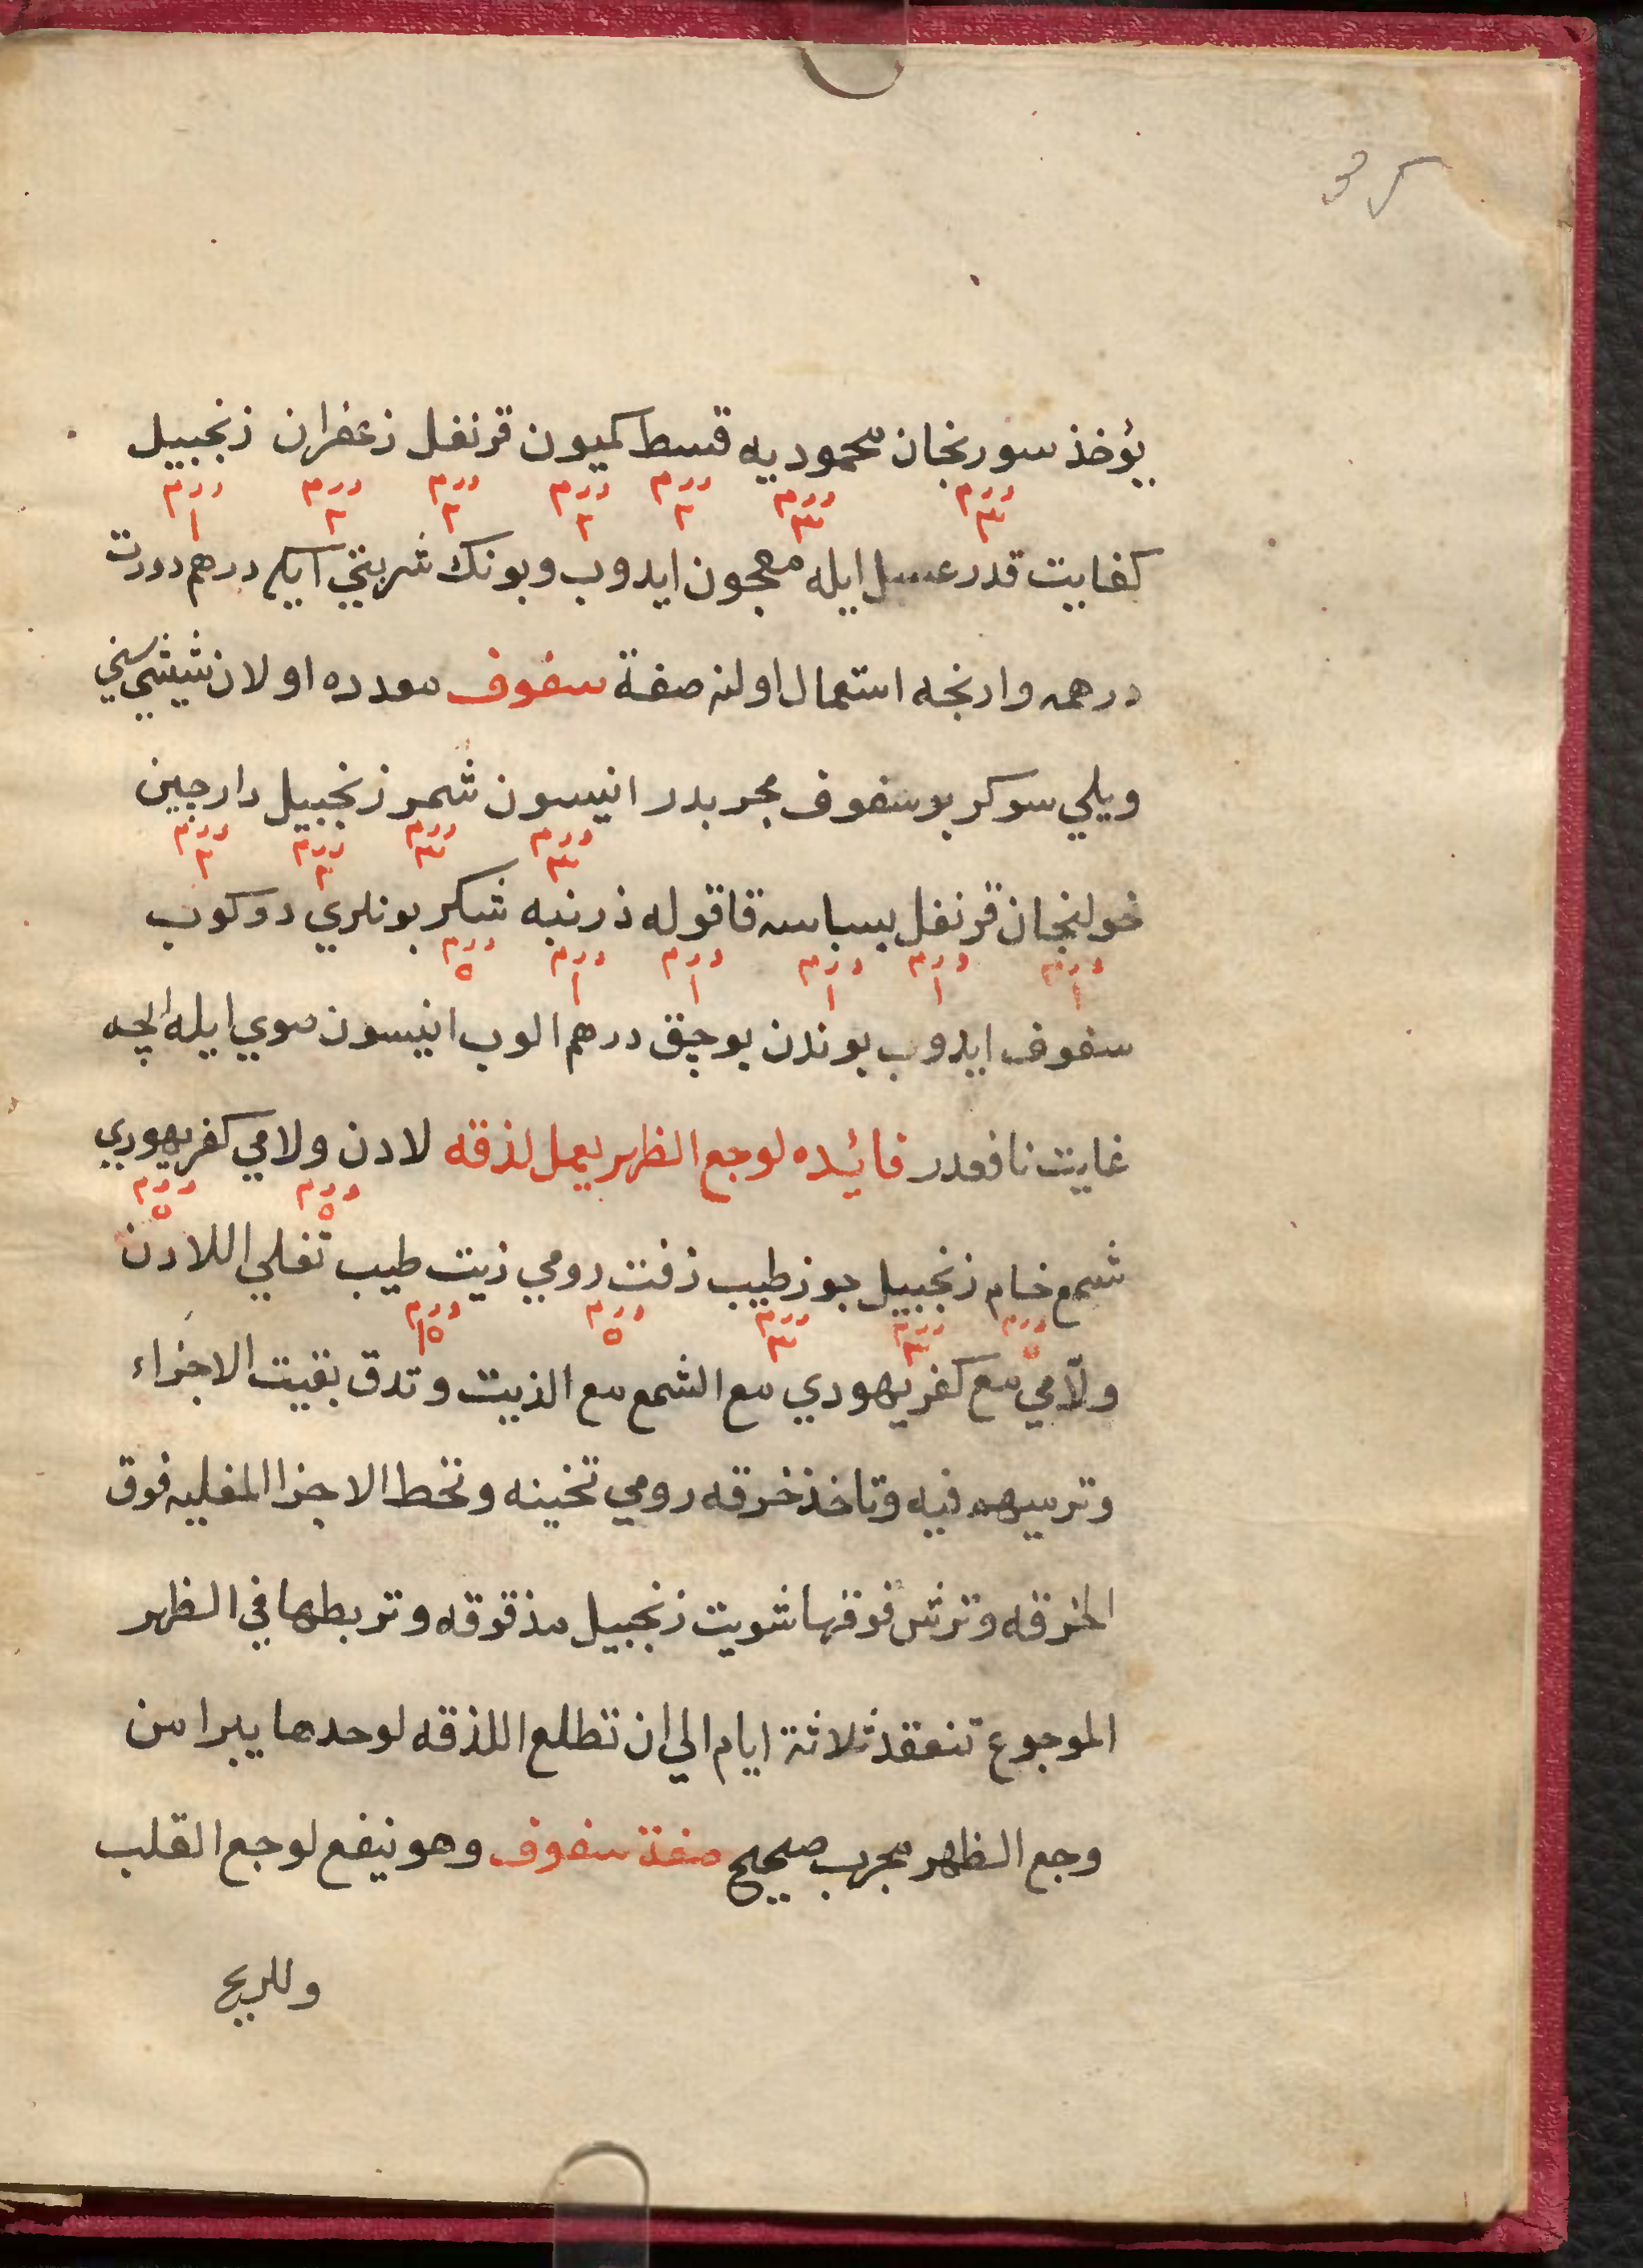 35
يؤخذ سورنجان محموديه قسط كميون قرنفل زعفران زنجبيل
درم ٣ درم ٣ درم ٢ درم ٢ درم ٢ درم ٢ درم ١
كفايت قدر عسل ايله معجون ايدوب وبونك شربتي ايكي درهم دورت
درهمه وارنجه استعمال اولنه صفة سفوف معدده اولان شيشي سني
ويلي سوكر بو سفوف مجربدر انيسون شمر زنجبيل دارجين
درم ٣ درم ٣ درم ٢ درم ٢
خولنجان قرنفل بسباسه قاقوله ذرنبه شكر بونلري دوكوب
درم ١ درم ١ درم ١ درم ١ درم ١ درم ٥
سفوف ايدوب بوندن بوچق درهم الوب انيسون صوي ايله ايچه
غايت نافعدر فائيده لوجع الظهر يعمل لذقه لادن ولامي كفر يهودي
درم ٥ درم ٥
شمع خام زنجبيل جوزطيب زفت رومي زيت طيب تغلي اللادن
درم ٥ درم ٣ درم ٣ درم ٥ درم ١٥
ولامي مع كفر يهودي مع الشمع مع الزيت وتدق بقيت الاجزاء
وترميهم فيه وتاخذ خرقه رومي تخينه وتحط الاجزا المغليه فوق
الخرقه وترش فوقها شويت زنجبيل مدقوقه وتربطها في الظهر
الموجوع تنعقد ثلاثة ايام الي ان تطلع اللذقه لوحدها يبرا من
وجع الظهر مجرب صحيح صفة سفوف وهو نيفع لوجع القلب
وللريح